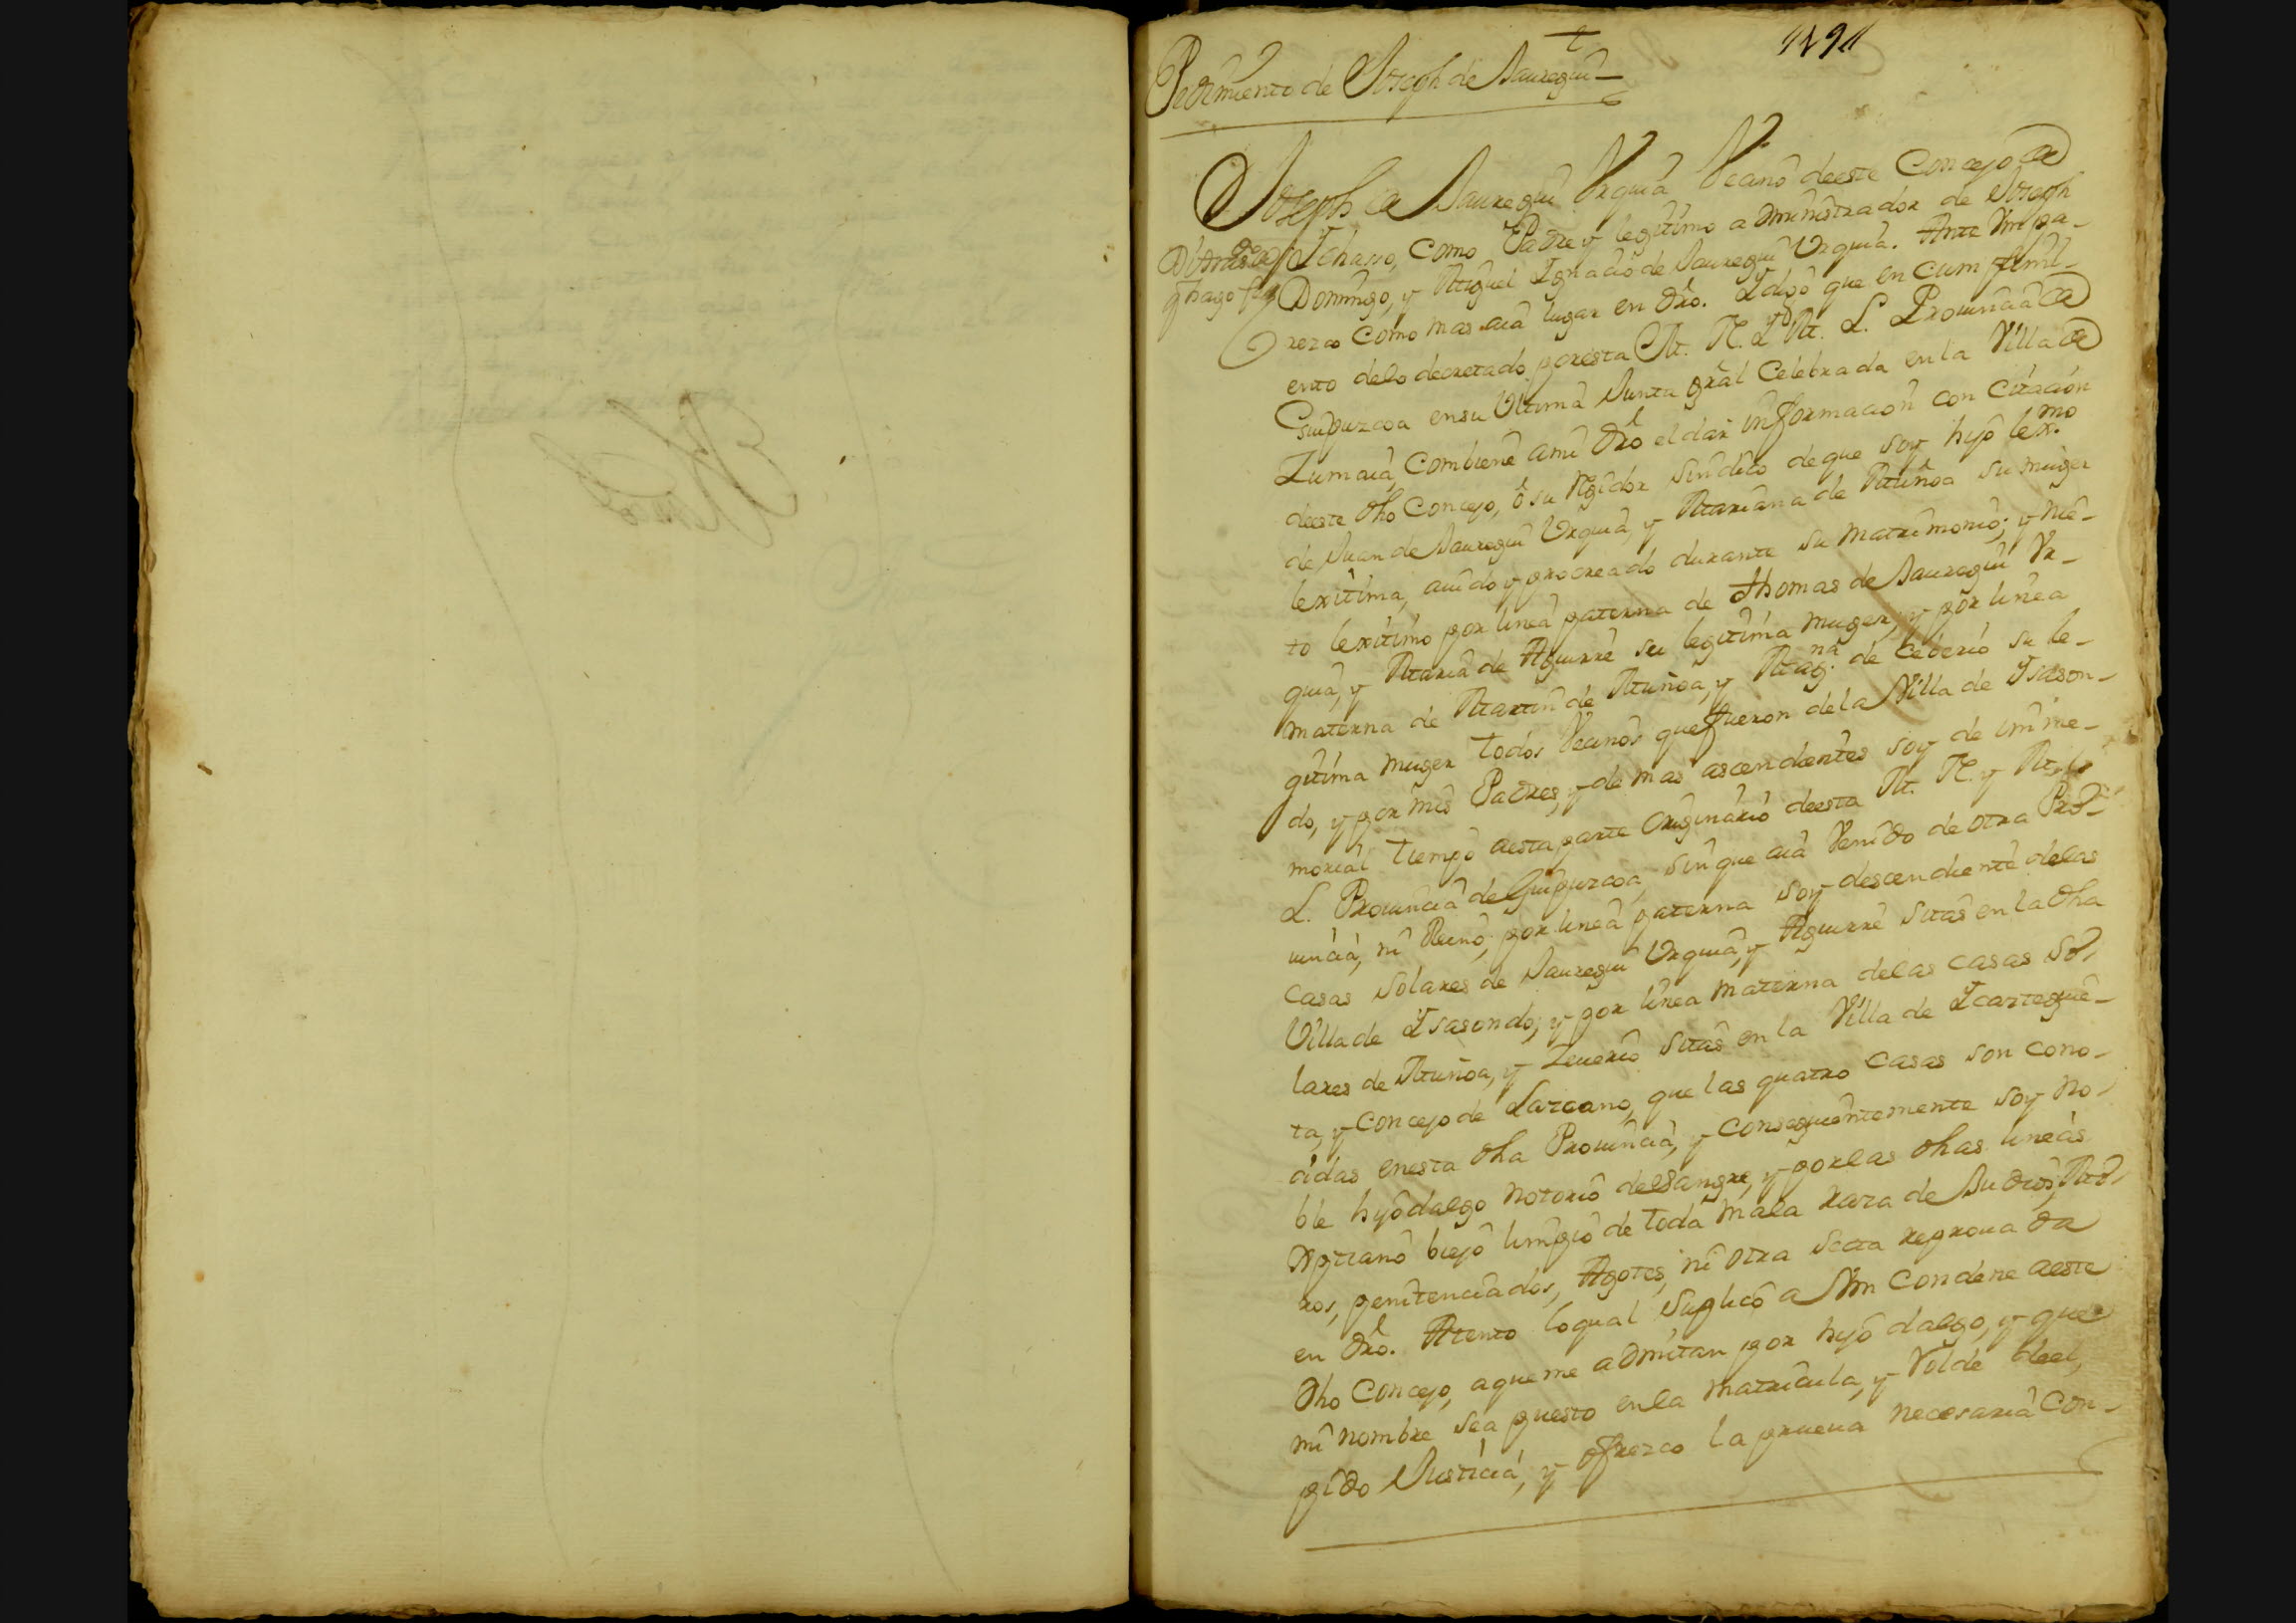 1491
Pedimiento de Joseph de Jauregui
Joseph de Jauregui Vrquia Vecino deeste Concejo de
Ichasso, como Padre y legitimo administrador de Joseph
Domingo, y Miguel Ignacio de Jauregui Vrquia. Ante Vm pa-
rezco como mas aia lugar en dro. Y digo que en cumplimi-
ento delo decretado poresta M. N. Y M. L. Prouincia de
Guipuzcoa ensu Vltima Junta gral Celebrada en la Villa de
Zumaia, combiene ami dro el dar informacion con Citacion
deeste dho Concejo, ô su Rexidor sindico deque soy hijo lexmo
de Juan de Jauregui Vrquia, y Mariana de Muñoa su muger
lexitima, auido y procreado durante su matrimonio; y nie-
to lexitimo por linea paterna de Thomas de Jauregui Vr-
quia, y Maria de Aguirre su legitima muger, y por linea
materna de Martin de Muñoa, y Magna. de Ceberio su le-
gitima muger todos Vecinos quefueron dela Villa de Isason-
do, y por mis Padres, y de mas ascendentes soy de imme-
morial tiempo aestaparte originario deesta M. N. y M.
L. Prouincia de Guipuzcoa, sin que aia Venido de otra Pro-
uincia, ni Reino; por linea paterna soy descendiente delas
casas solares de Jauregui Vrquia, y Aguirre sitas en la dha
Villa de Isasondo; y por linea materna delas casas so-
lares de Muñoa, y Zeuerio sitas en la Villa de Ycazteguie-
ta, y Concejo de Lazcano, que las quatro casas son cono-
cidas enesta dha Prouincia, y consequentemente soy no-
ble hijodalgo notorio desangre, y porlas dhas lineas
xptiano biejo limpio de toda mala raza de Judios, Mo-
ros, penitenciados, Agotes, ni otra secta reprouada
en dro. Atento loqual suplico a Vm condene aeste
dho Concejo, aqueme admitan por hijo dalgo, y que
mi nombre sea puesto enla matricula, y Rolde deel,
pido Justicia, y ofrezco la prueua necesaria Con-